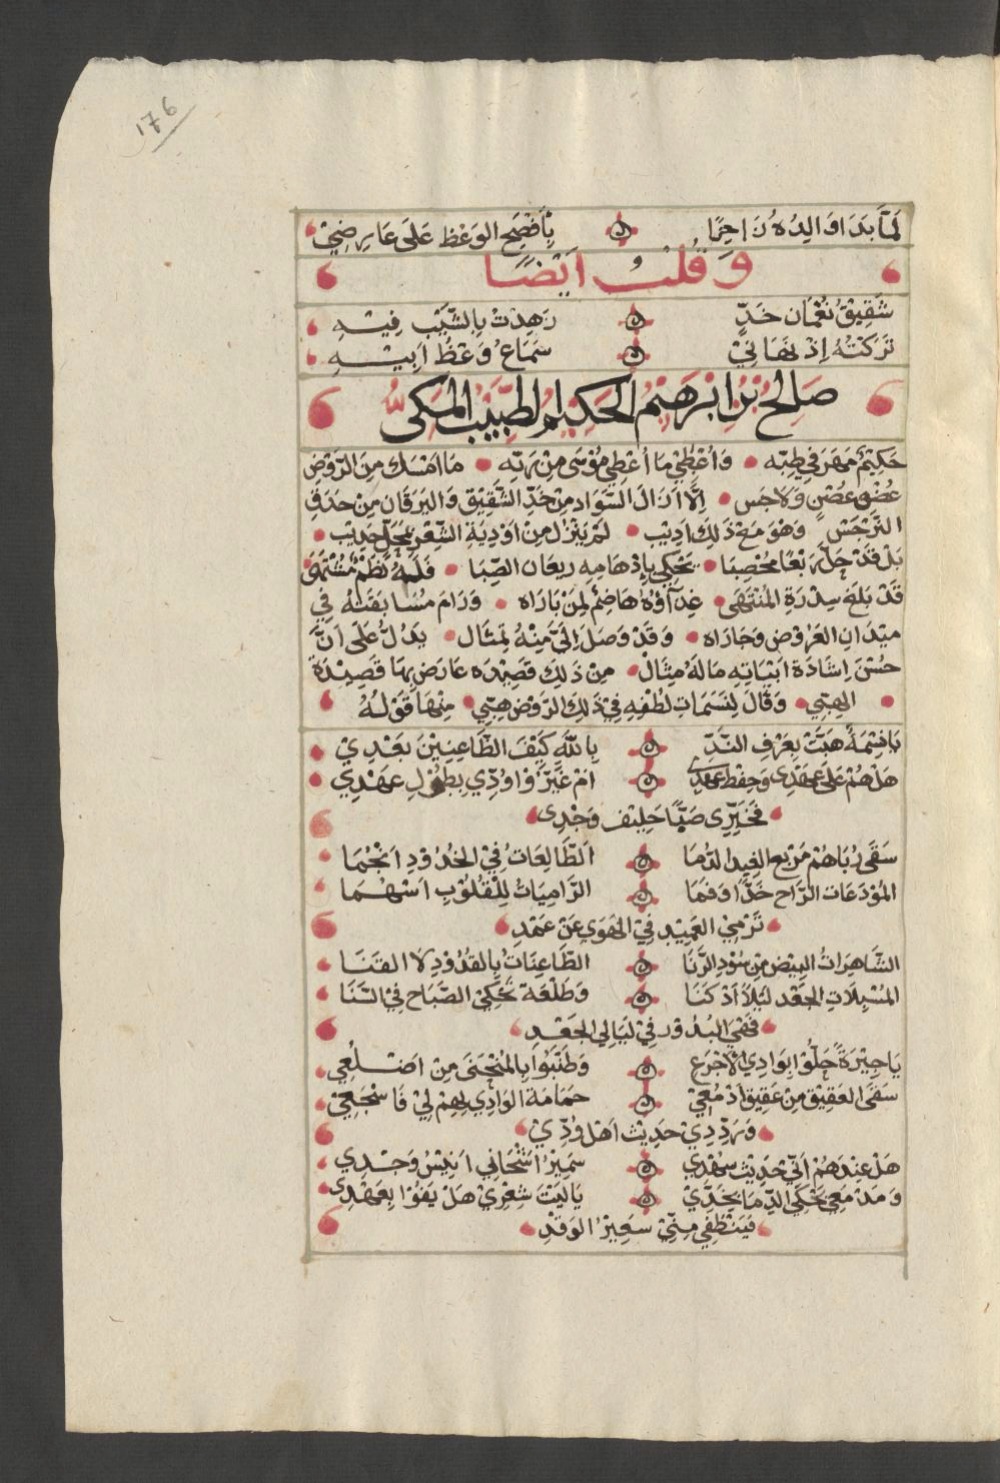 176
لَمَّا بَدَا وَالِدُهُ زَاحِمًا بِأَفْصَحِ الوَعْظِ عَلَى عَارِضِيْ
وَقُلْتُ اَيْضًا
شَقِيْقُ نُعْمَان خَدٍّ زَهِدْتُ بِالشَّيْبِ فِيْهِ
تَرَكْتُهُ اِذْ نَهَانِيْ سَمَاعُ وَعْظِ اَبِيْهِ
صَالِحُ بْنُ ابْرَهِيْمَ الحَكِيْمُ الطَّبِيْبُ المَكِّىُّ
حَكِيْمٌ مَهَرَ فِي طِبِّه وَأُعْطِيَ مَا أُعْطِى مُوْسَى مِنْ رَبِّهِ مَا امْسَكَ مِنَ الرَّوْضِ
عُضْوَ غُصْنٍ وَلَا جَسَّ اِلَّا ازَالَ السَّوَادَ مِنْ خَدِّ الشَّقِيْقِ وَاليَرَقَان مِنْ حَدَقِ
النَّرْجِسْ وَهُوَ مَعَ ذَلِكَ اَدِيْب لَمْ يَنْزِلْ مِنْ اَوْدِيَةِ الشِّعْرِ بِمَحَلٍّ جَدِيْب
بَلْ قَدْ حَلَّ رَبْعًا مُخْصِبَا يَحْكِي بِاِزْهَامِهِ رَيعَان الصِّبَا فَلَهُ نَظْمٌ مُشْتَهَى
قَدْ بَلَغَ سِدْرَةِ المُنْتَهَى غِذَآؤُهُ هَاضِمٌ لِمَنْ بَارَاه وَرَامَ مُسَابَقَتَهُ فِي
مَيْدَانِ العَرُوْضِ وَجَارَاه وَقَدْ وَصَلَ اِلَيَّ مِنْهُ تِمْثَال يَدُلُّ عَلَى اَنَّ
حُسْنَ اِشَادَةِ ابْيَاتِهِ مَا لَهُ مِثَالْ مِنْ ذَلِكَ قَصِيْدَه عَارَضَ بِهَا قَصِيْدَةَ
الهِبَتِي وَقَالَ لِنَسَمَاتِ لُطْفِهِ فِيْ ذَلِكَ الرَّوْضِ هِبِّي مِنْهَا قَوْلُهُ
يَا نِسْمَةً هَبَّتْ بِعَرْفِ النَّدِّ بِاللَّهِ كَيْفَ الظَّاعِنِيْنَ بَعْدِيْ
هَلْ هُمْ عَلَى عَهْدِى وَحِفْظِ عَهْدِى اَمْ غَيَّرُوْا وُدِّي بِطُوْلِ عَهْدِي
فَخَبِّرِى صَبًّا حَلِيْفَ وَجْدِى
سَقَى رُبَاهُمْ مَرْبِع الغِيدِ الدُّمَا الطَّالِعَاتُ فِيْ الخُدُوْدِ اَنْجُمَا
المُوْدَعَات الرَّاح خَدًّا وَفَمَا الرَّامِيَاتُ لِلْقُلُوْبِ اَسْهُمَا
تَرْمِيْ العَمِيْدِ فِيْ الهَوَى عَنْ عَمْدِ
الشَّاهِرَاتُ البِيْضَ مِنْ سُوْدِ الرَّنَا الطَّاعِنَاتُ بِالقُدُوْدِ لَا القَنَا
المُسْبِلَاتِ الجَعْد لَيْلًا اَدْكَنَا وَطَلْعَة تَحْكِيْ الصَّبَاحَ فِيْ السَّنَا
فَهْيَ البُدُوْر فِيْ لَيَالِي الجَعْدِ
يَا جِيْرَةً حَلُّوْا بِوَادِي الاَجْرَعِ وَطَنَّبُوْا بِالمُنْحَنَى مِنْ اَضْلُعِي
سَقَى العَقِيْقَ مِنْ عَقِيْقِ اَدْمُعِيْ حَمَامَة الوَادِي بِهِمْ لِيْ فَاسْجَعِيْ
وَرَدِّدِيْ حَدِيْث اَهْلِ وُدِّيْ
هَلْ عِنْدَهُمْ اَنِّيْ حَدِيْث سُهْدِي سَمِيْرُ اَشْجَانِي اَنِيْسُ وَجْدِي
وَمَدْمَعِي يَحْكِي الدِّمَا بِخَدِّيْ يَالَيْتَ شِعْرِيْ هَلْ يَفُوْا بِعَهْدِى
فَيَنْطَفِي مِنِّيْ سَعِيْرُ الوَقْدِ